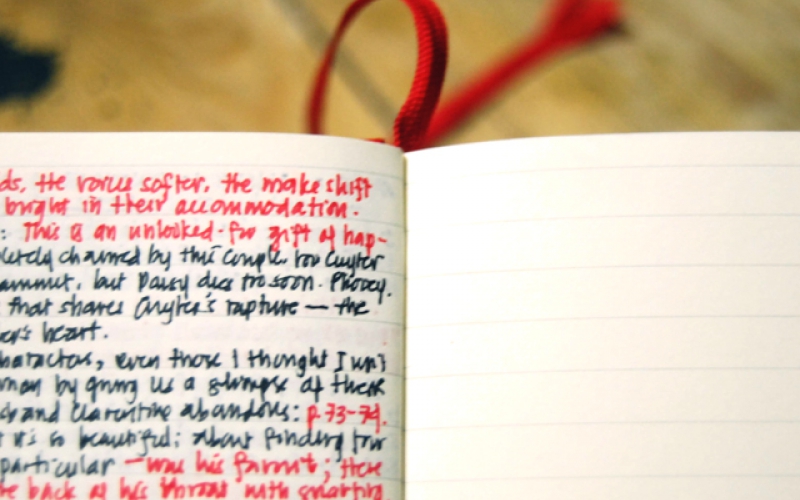 ds, the voice softer, the make shift
bright in their accommodation.
: This is an unlooked-for gift of hap-
pletely charmed by this couple, too Cuyler
ammet, but Daisy dies too soon. Phooey.
that shares Cuyler's rapture — the
er's heart.
haracters, even those I thought I wn't
man by giving us a glimpse of these
and Clarentine abandons: p. 73-74.
it is so beautiful; about finding
particular — was his favourite; there
back of his throat with smarting